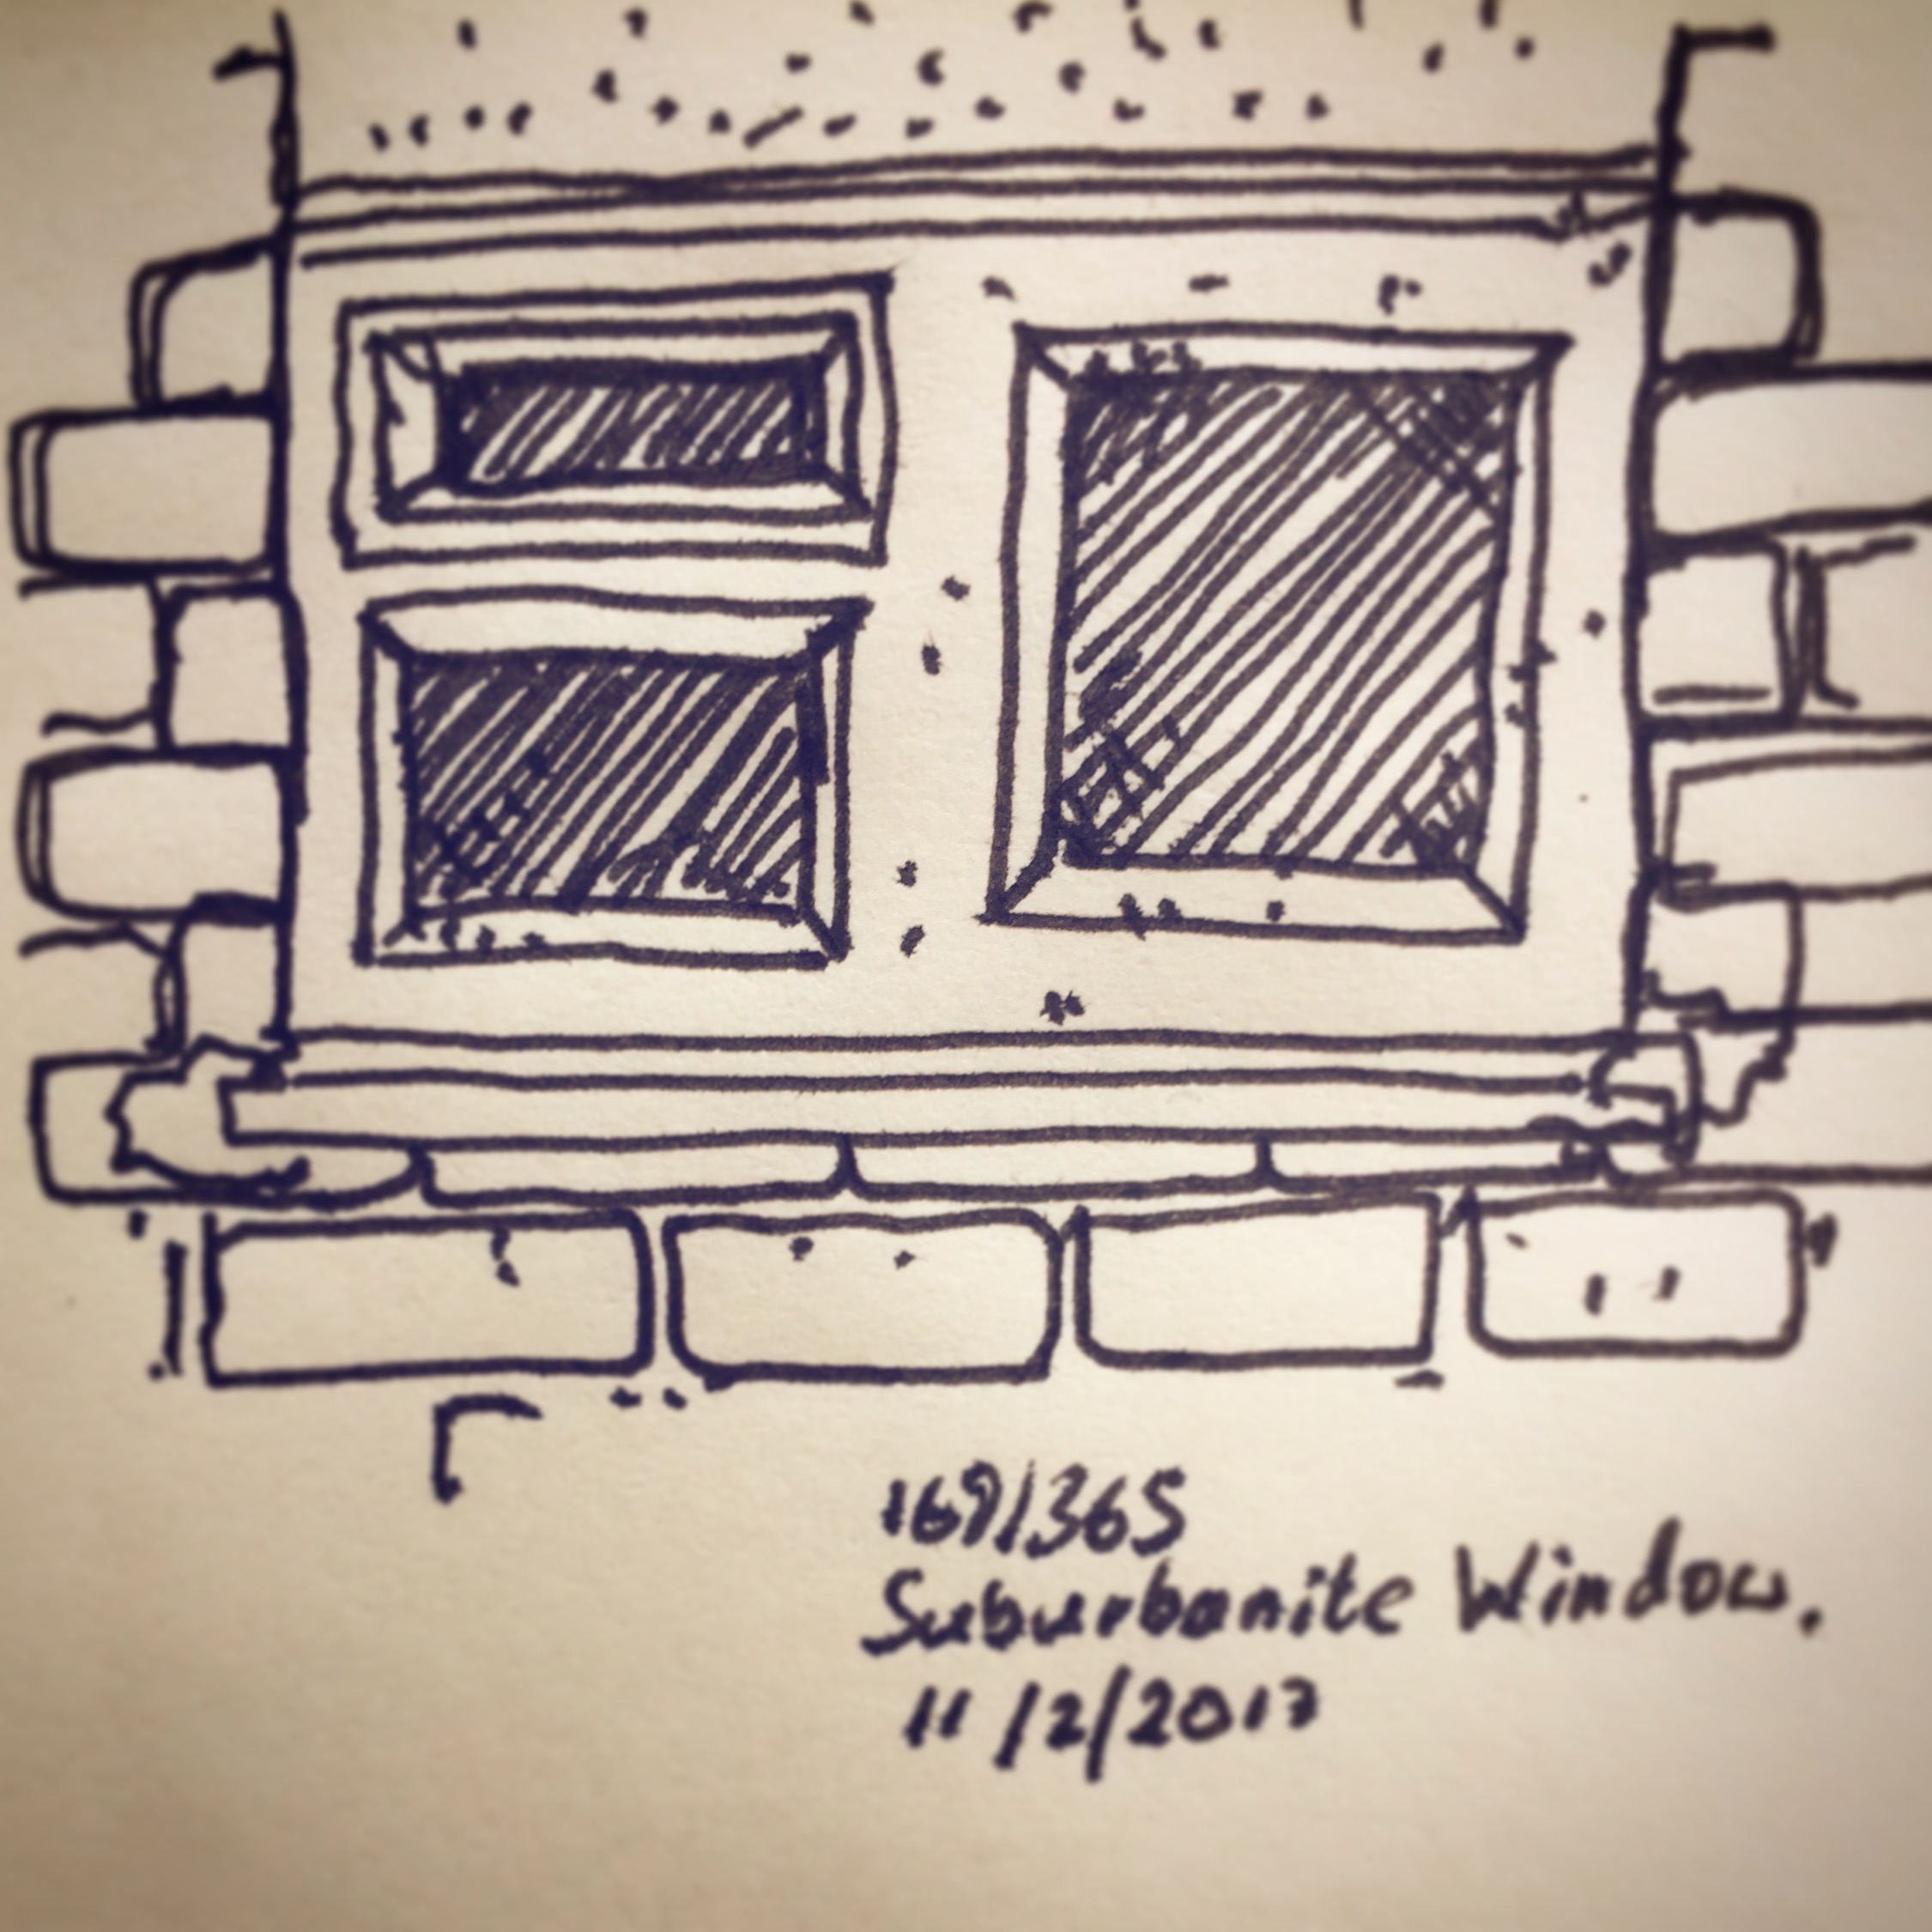 169/365
Suburbanite Window.
11/2/2017